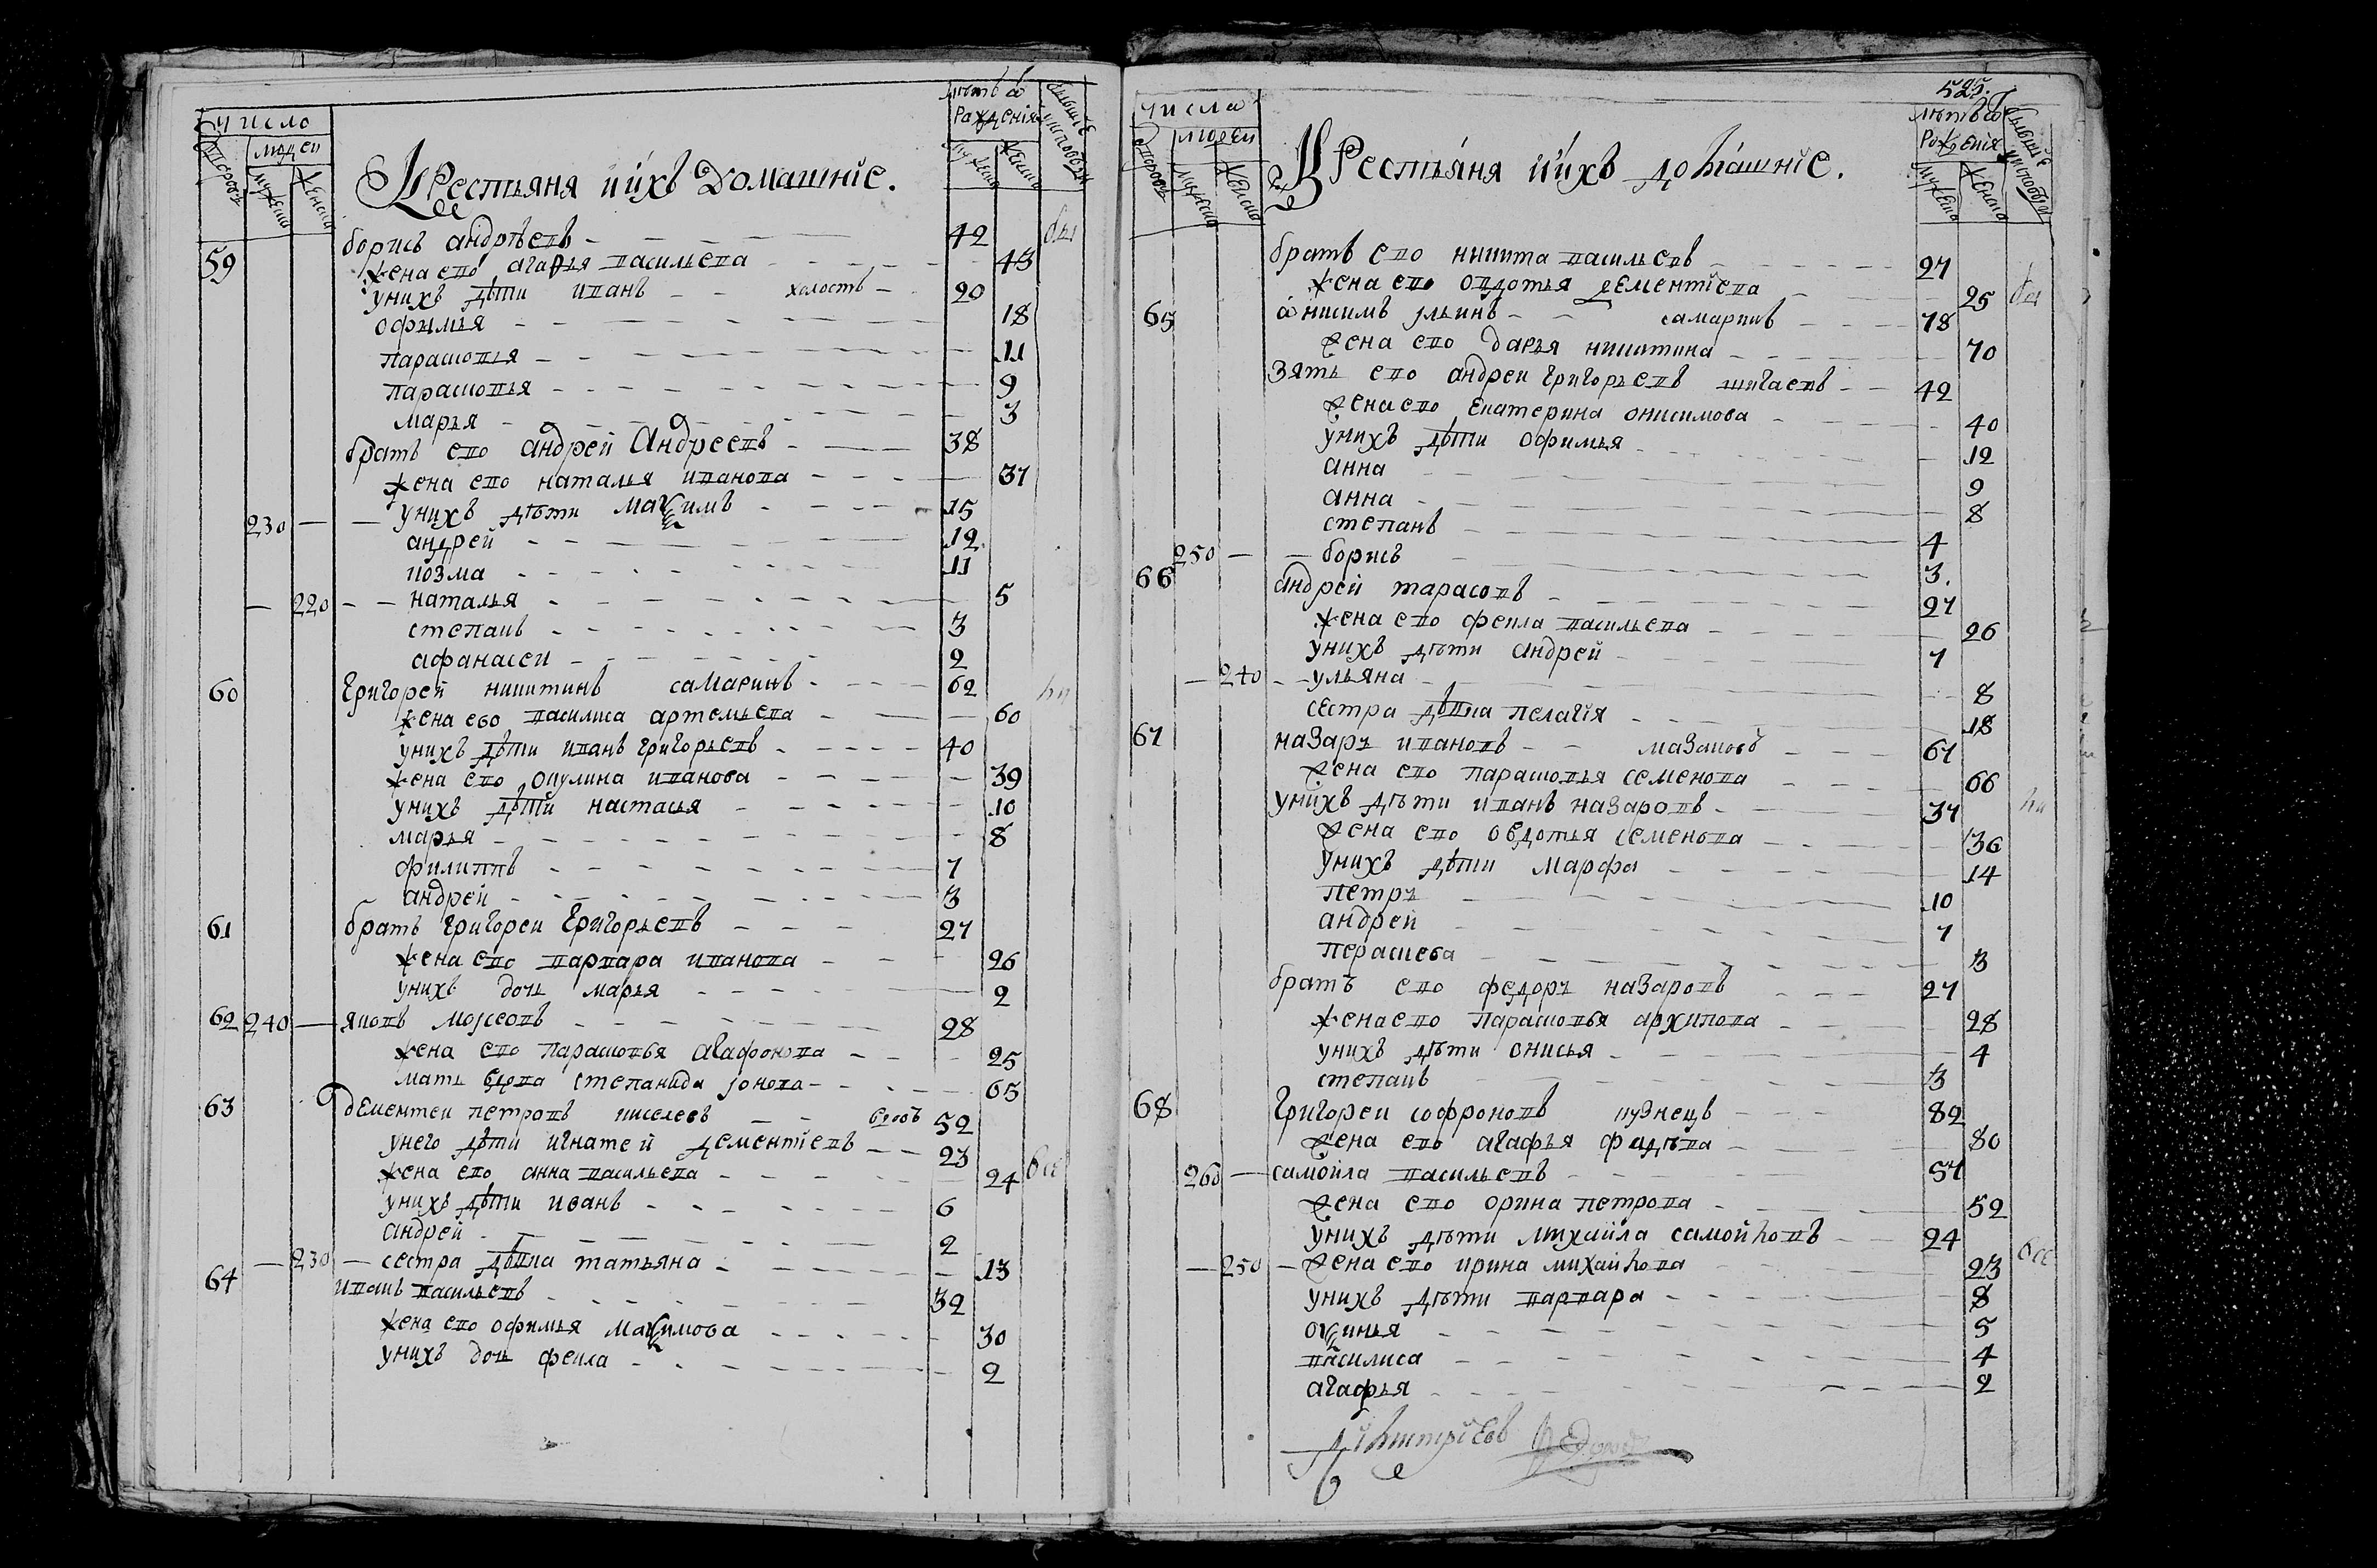 число
людеи
дворовъ
мужеска
женска
Крестьяня и ихъ домашніе.
лѣтъ ѿ
рожденія
мужеска
женска
бывшіе у исповѣди
59 борисъ андрѣевъ 42 бы
жена ево агафья васильева 43
у нихъ дѣти иванъ холостъ 20
офимья 18
парасковья 11
парасковья 9
марья 3
братъ ево андрей андреевъ 38
жена ево наталья иванова 37
230 у нихъ дѣти маѯимъ 15
андрей 12
козма 11
220 наталья 5
степанъ 3
афанасеи 2
60 григорей никитинъ самаринъ 62
жена ево василиса артемьева 60
у нихъ дѣти иванъ григорьевъ 40
жена ево окулина иванова 39
у нихъ дѣти настасья 10
марья 8
филиппъ 7
андрей 3
61 братъ григореи григорьевъ 27
жена ево варвара иванова 26
у нихъ дочь марья 2
62 240 яковъ мосеовъ 28
жена ево парасковья агафонова 25
мать вдова степанида іонова 65
63 дементеи петровъ киселевъ вдовъ 52
у него дѣти игнатей дементіевъ 23
жена ево анна васильева 24 всѣ
у нихъ дѣти иванъ 6
андрей 2
230 сестра дѣвка татьяна 13
64 иванъ васильевъ 32
жена ево офимья маѯимова 30
у нихъ дочь фекла 2
525.
числа
людеи
дворовъ
мужеска
женска
Крестьяня и ихъ домашніе.
лѣтъ ѿ
рожденія
мужеска
женска
бывшіе у исповѣди
братъ ево никита васильевъ 27
жена ево овдотья дементіева 25 бы
65 ѡнисимъ ильинъ самаринъ 78
жена ево дарья никитина 70
зять ево андреи григорьевъ шигаевъ 42
жена ево екатерина онисимова 40
у нихъ дѣти офимья 12
анна 9
анна 8
степанъ 4
250 борисъ 3.
66 андрей тарасовъ 27
жена ево фекла васильева 26
у нихъ дѣти андрей 7
240 ульяна 8
сестра дѣвка пелагія 18
67 назаръ ивановъ мазановъ 67
жена ево парасковья семенова 66
у нихъ дѣти иванъ назаровъ 37
жена ево овдотья семенова 36
у нихъ дѣти марфа 14
петръ 10
андрей 7
пераскева 3
братъ ево федоръ назаровъ 27
жена ево парасковья архипова 28
у нихъ дѣти онисья 4
степанъ 3
68 григореи софроновъ кузнецъ 82
жена ево агафья фадѣва 80
260 самойла васильевъ 57
жена ево орина петрова 52
у нихъ дѣти михайла самойловъ 24
250 жена ево ирина михайлова 23 всѣ
у нихъ дѣти варвара 8
оѯинья 5
василиса 4
агафья 2
Димитріевъ